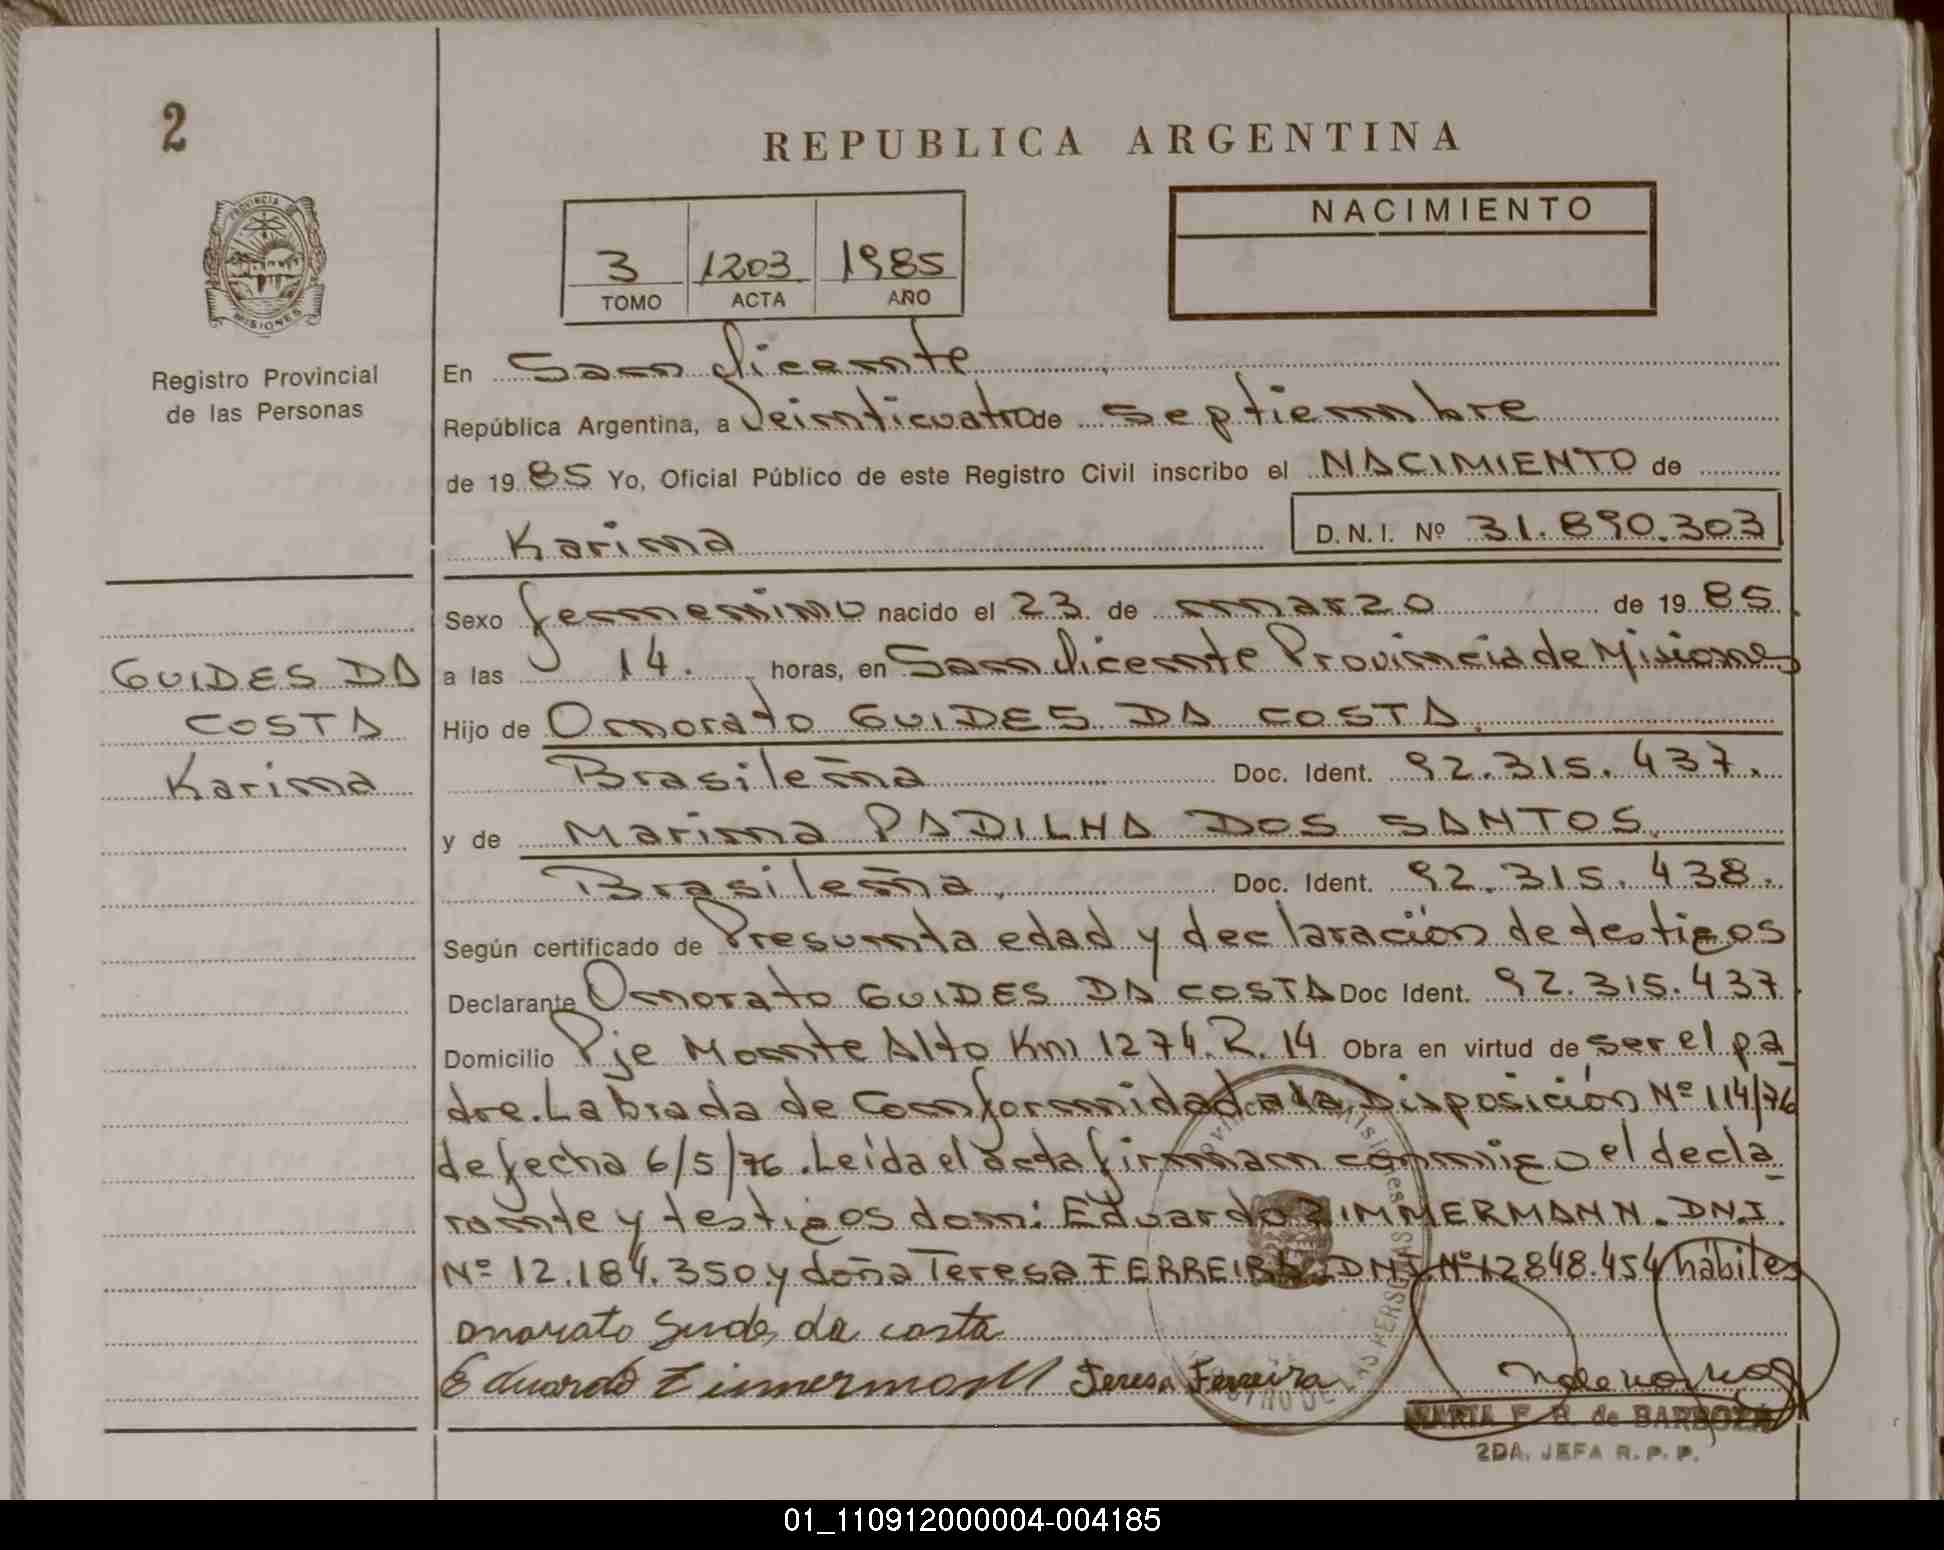 2
REPUBLICA ARGENTINA
PROVINCIA DE
MISIONES
Registro Provincial
de las Personas
3 1203 1985
TOMO ACTA AÑO
NACIMIENTO
En San Vicente
República Argentina, a Veinticuatro de septiembre
de 1985 Yo, Oficial Público de este Registro Civil inscribo el NACIMIENTO de
Karina D.N.I. Nº 31.890.303
Sexo femenino nacido el 23 de marzo de 1985
a las 14. horas, en San Vicente Provincia de Misiones
Hijo de Onorato GUIDES DA COSTA.
Brasileña Doc. Ident. 92.315.437.
y de Marina PADILHA DOS SANTOS.
Brasileña. Doc. Ident. 92.315.438.
Según certificado de Presunta edad y declaración de testigos
Declarante Onorato GUIDES DA COSTA Doc Ident. 92.315.437
Domicilio Pje Monte Alto Km 1274. R. 14 Obra en virtud de ser el pa
dre. Labrada de Conformidad a la Disposición Nº 114/76
de fecha 6/5/76. Leída el acta firman conmigo el decla
rante y testigos don: Eduardo ZIMMERMANN. DN.I.
Nº 12.184.350 y doña Teresa FERREIRA DNI Nº 12848.454 hábiles
onorato Guides da costa
Eduardo Zimmermann Teresa Ferreira
MARIA F. R. de BARBOZA
2DA. JEFA R. P. P.
GUIDES DA
COSTA
Karina
01_110912000004-004185